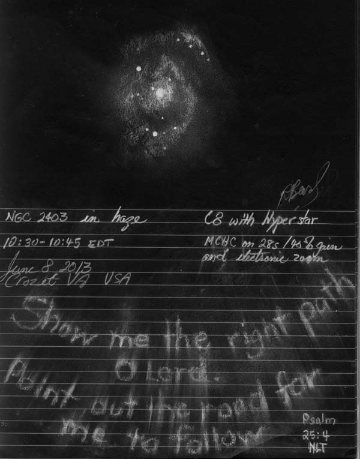 NGC 2403 in haze
C8 with Hyperstar
10:30-10:45 EDT
MCHC on 28s / 40% gain
and electronic zoom
June 8 2013
Crozet VA USA
Show me the right path
O Lord.
Point out the road for
me to follow
Psalm
25:4
NLT